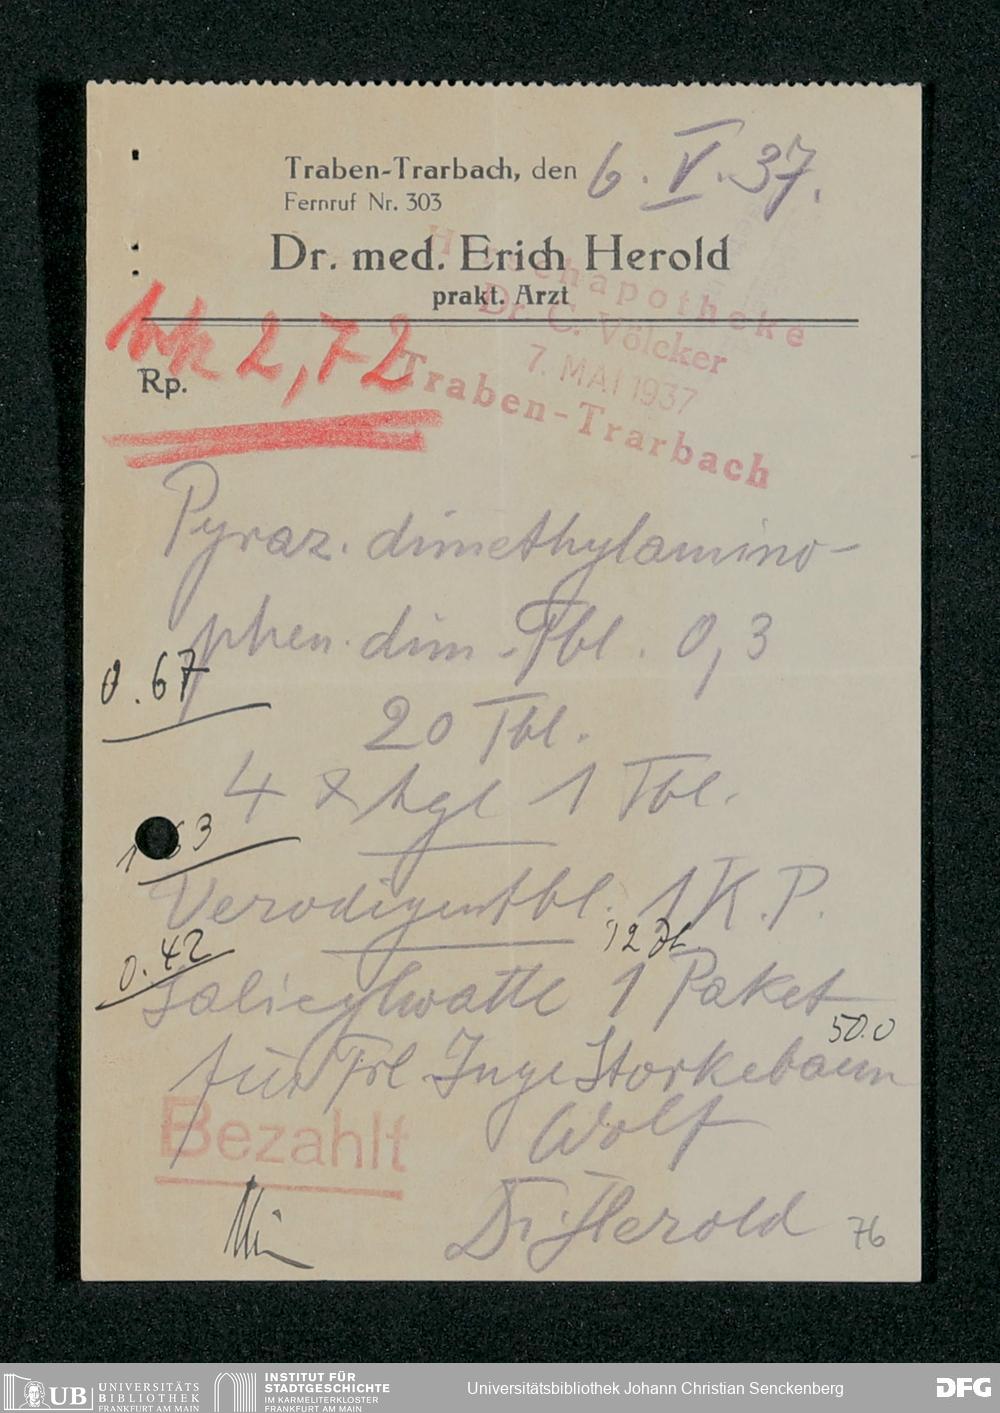 Traben-Trarbach, den 6. V. 37.
Fernruf Nr. 303
Dr. med. Erich Herold
prakt. Arzt
Hirschapotheke
Dr. C. Völcker
7. MAI 1937
Traben-Trarbach
Mk 2,72
Rp.
Pyraz. dimethylamino-
phen. dim. Tbl. 0,3
0.67
20 Tbl.
4 x tgl 1 Tbl.
63
Verodigentbl. 1 K.P.
12
0.42
Salicylwatte 1 Paket
50.0
für Frl. Inge Storkebaum
Wolf
Bezahlt
Dr. Herold
76
UB UNIVERSITÄTS
BIBLIOTHEK
FRANKFURT AM MAIN
INSTITUT FÜR
STADTGESCHICHTE
IM KARMELITERKLOSTER
FRANKFURT AM MAIN
Universitätsbibliothek Johann Christian Senckenberg
DFG